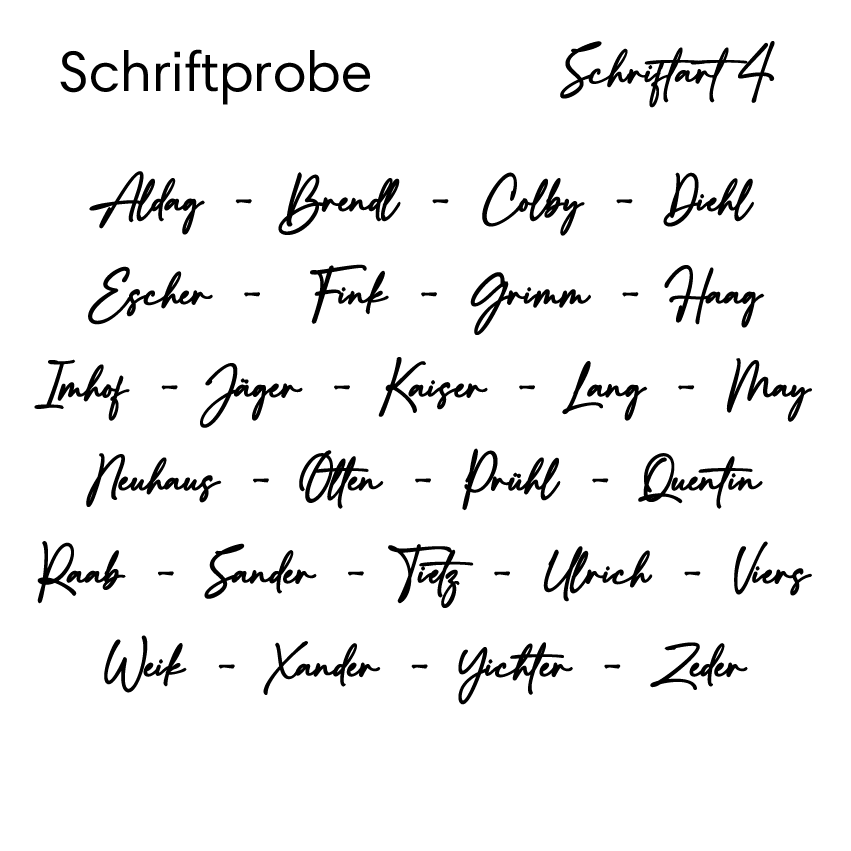 Schriftprobe Schriftart 4
Aldag - Brendl - Colby - Diehl
Escher - Fink - Grimm - Haag
Imhof - Jäger - Kaiser - Lang - May
Neuhaus - Otten - Prühl - Quentin
Raab - Sander - Tietz - Ulrich - Viers
Weik - Xander - Yichter - Zeder